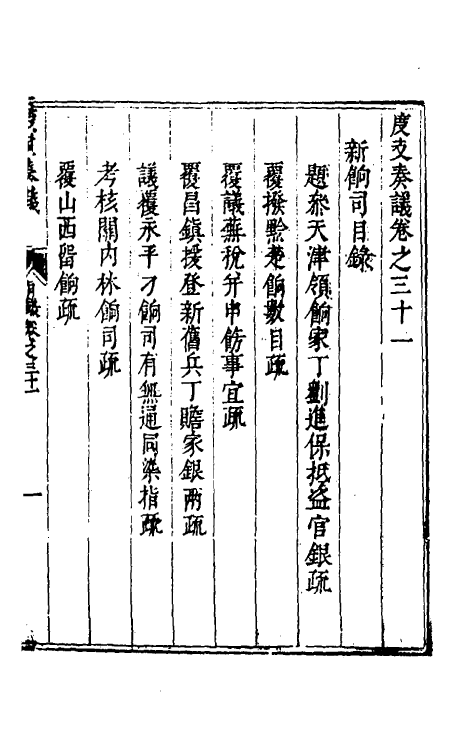 度支奏議卷之三十一
新餉司目錄
題叅天津領餉家丁劉進保抵盗官銀疏
覆撥黔楚餉數目疏
覆議蕪稅并申飭事宜疏
覆昌鎮援登新舊兵丁贍家銀兩疏
議覆永平刁餉司有無通同染指疏
考核關内林餉司疏
覆山西留餉疏
目錄卷之三十一
一